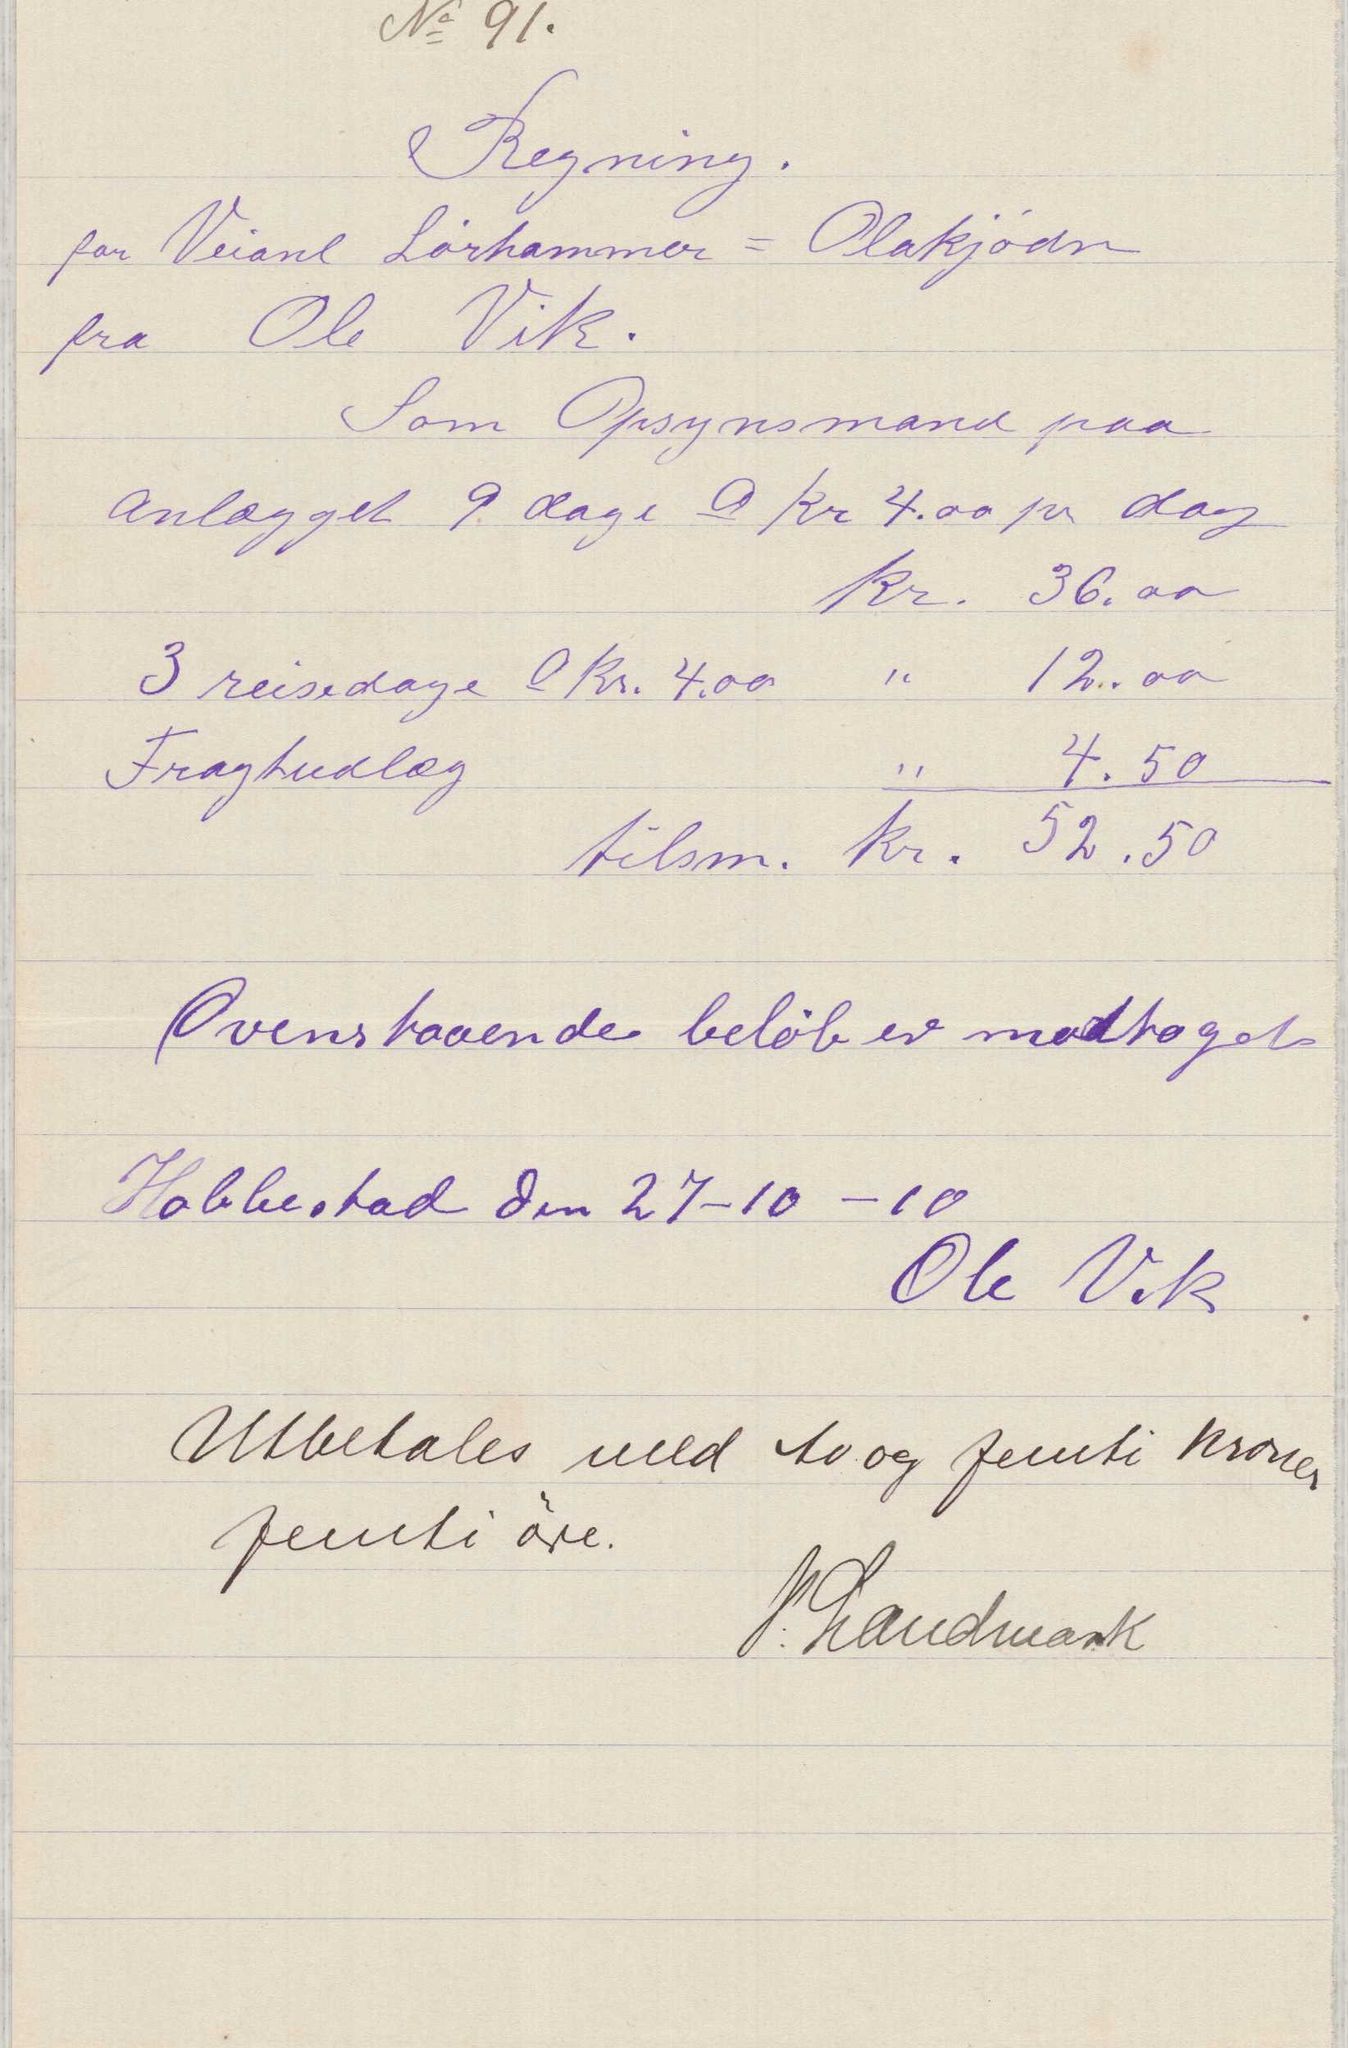 No 91.
Regning.
for Veianl Lørhammer = Olakjødn
fra Ole Vik.
Som Opsynsmand paa
anlægget 9 dage a kr 4.00 pr dag
kr. 36.00
3 reisedage a kr. 4.00 " 12.00
Fragtudlæg " 4.50
tilsm. kr. 52.50
Ovenstaaende beløb er modtaget
Hobbestad den 27-10-10
Ole Vik
Utbetales med to og femti kroner
femti öre.
Landmark